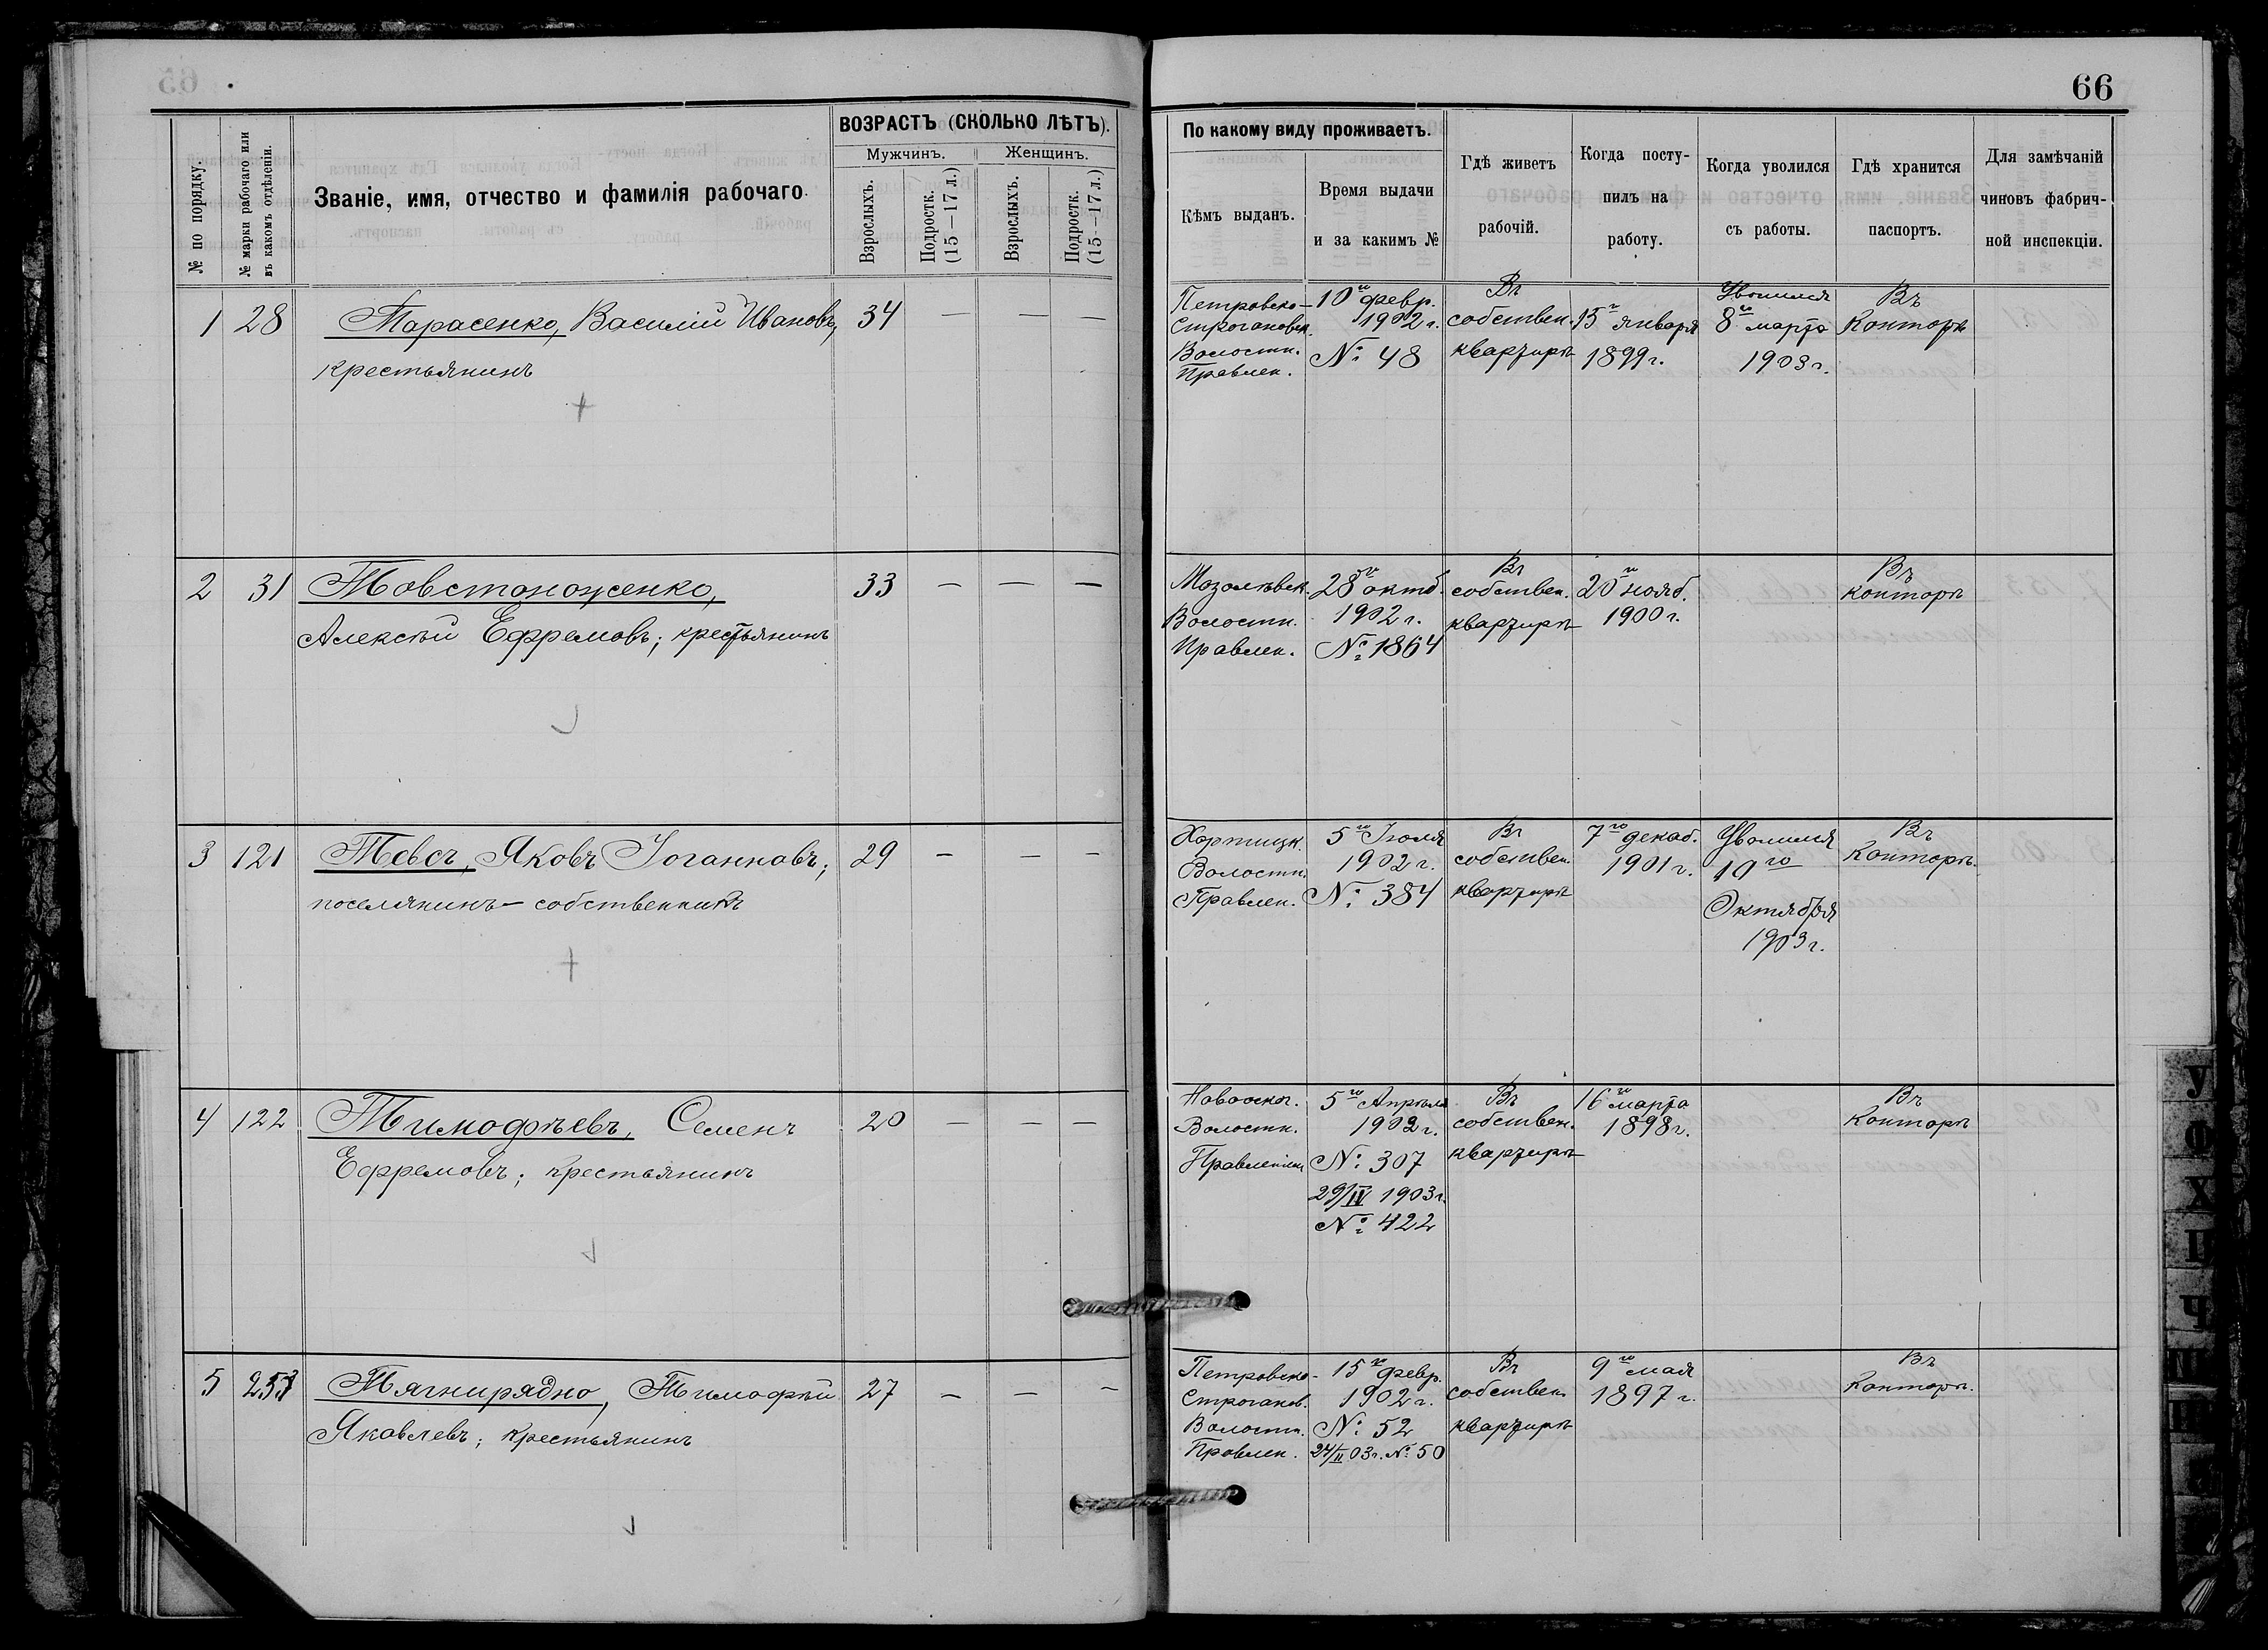 66
№ по порядку.
№ марки рабочаго или
въ какомъ отдѣленіи.
Званіе, имя, отчество и фамилія рабочаго.
ВОЗРАСТЪ (СКОЛЬКО ЛѢТЪ).
Мужчинъ.
Женщинъ.
Взрослыхъ.
Подростк.
(15—17 л.)
Взрослыхъ.
Подростк.
(15—17 л.)
По какому виду проживаетъ.
Кѣмъ выданъ.
Время выдачи
и за какимъ №
Гдѣ живетъ
рабочій.
Когда посту-
пилъ на
работу.
Когда уволился
съ работы.
Гдѣ хранится
паспортъ.
Для замѣчаній
чиновъ фабрич-
ной инспекціи.
1
28
Тарасенко, Василій Ивановъ,
крестьянинъ
34
— — —
Петровско-
Строгановск.
Волостн.
Правлен.
10го февр.
1902 г.
№ 48
Въ
собствен.
квартирѣ
15го января
1899 г.
Уволился
8го марта
1903 г.
Въ
Конторѣ
2
31
Товстоноженко,
Алексѣй Ефремовъ; крестьянинъ
33
— — —
Мозолѣвск.
Волостн.
Правлен.
28го октб.
1902 г.
№ 1864
Въ
собствен.
квартирѣ
20го нояб.
1900 г.
Въ
конторѣ
3
121
Тевсъ, Яковъ Іоганновъ;
поселянинъ-собственникъ
29
— — —
Хортицк.
Волостн.
Правлен.
5го Іюля
1902 г.
№ 384
Въ
собствен.
квартирѣ
7го декаб.
1901 г.
Уволился
10го
Октября
1903 г.
Въ
Конторѣ.
4
122
Тимофѣевъ, Семенъ
Ефремовъ; крестьянинъ
20
— — —
Новооскол.
Волостн.
Правленіем
5го Апрѣля
1902 г.
№ 307
29/IV 1903 г.
№ 422
Въ
собствен.
квартирѣ
16го марта
1898 г.
Въ
Конторѣ
5
Тягнирядно, Тимофѣй
Яковлевъ; крестьянинъ
27
— — —
Петровско-
Строганов.
Волостн.
Правлен.
15го февр.
1902 г.
№ 52
24/II 03 г. № 50
Въ
собствен.
квартирѣ
9го мая
1897 г.
Въ
Конторѣ.
У
Ф
Х
Ц
Ч
Ш
Щ